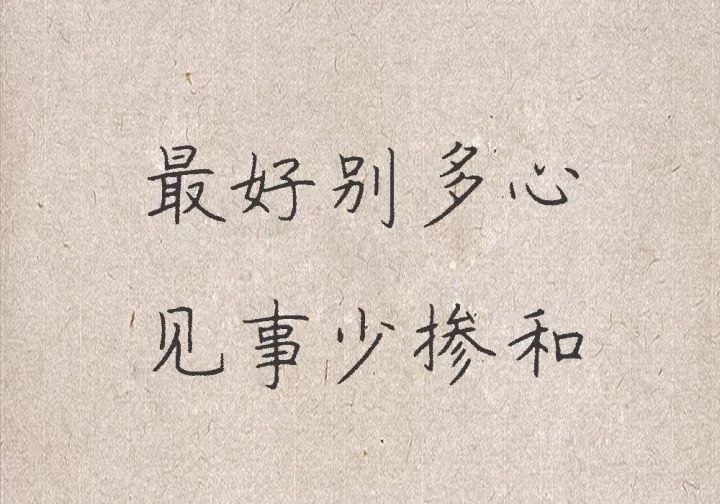 最好别多心
见事少掺和